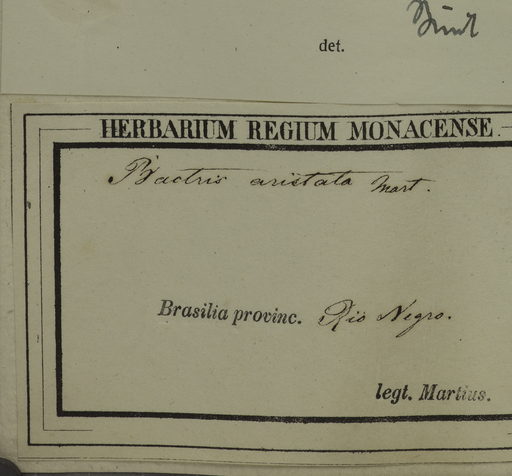 det.
HERBARIUM REGIUM MONACENSE.
Bactris aristata Mart.
Brasilia provinc. Rio Negro.
legt. Martius.